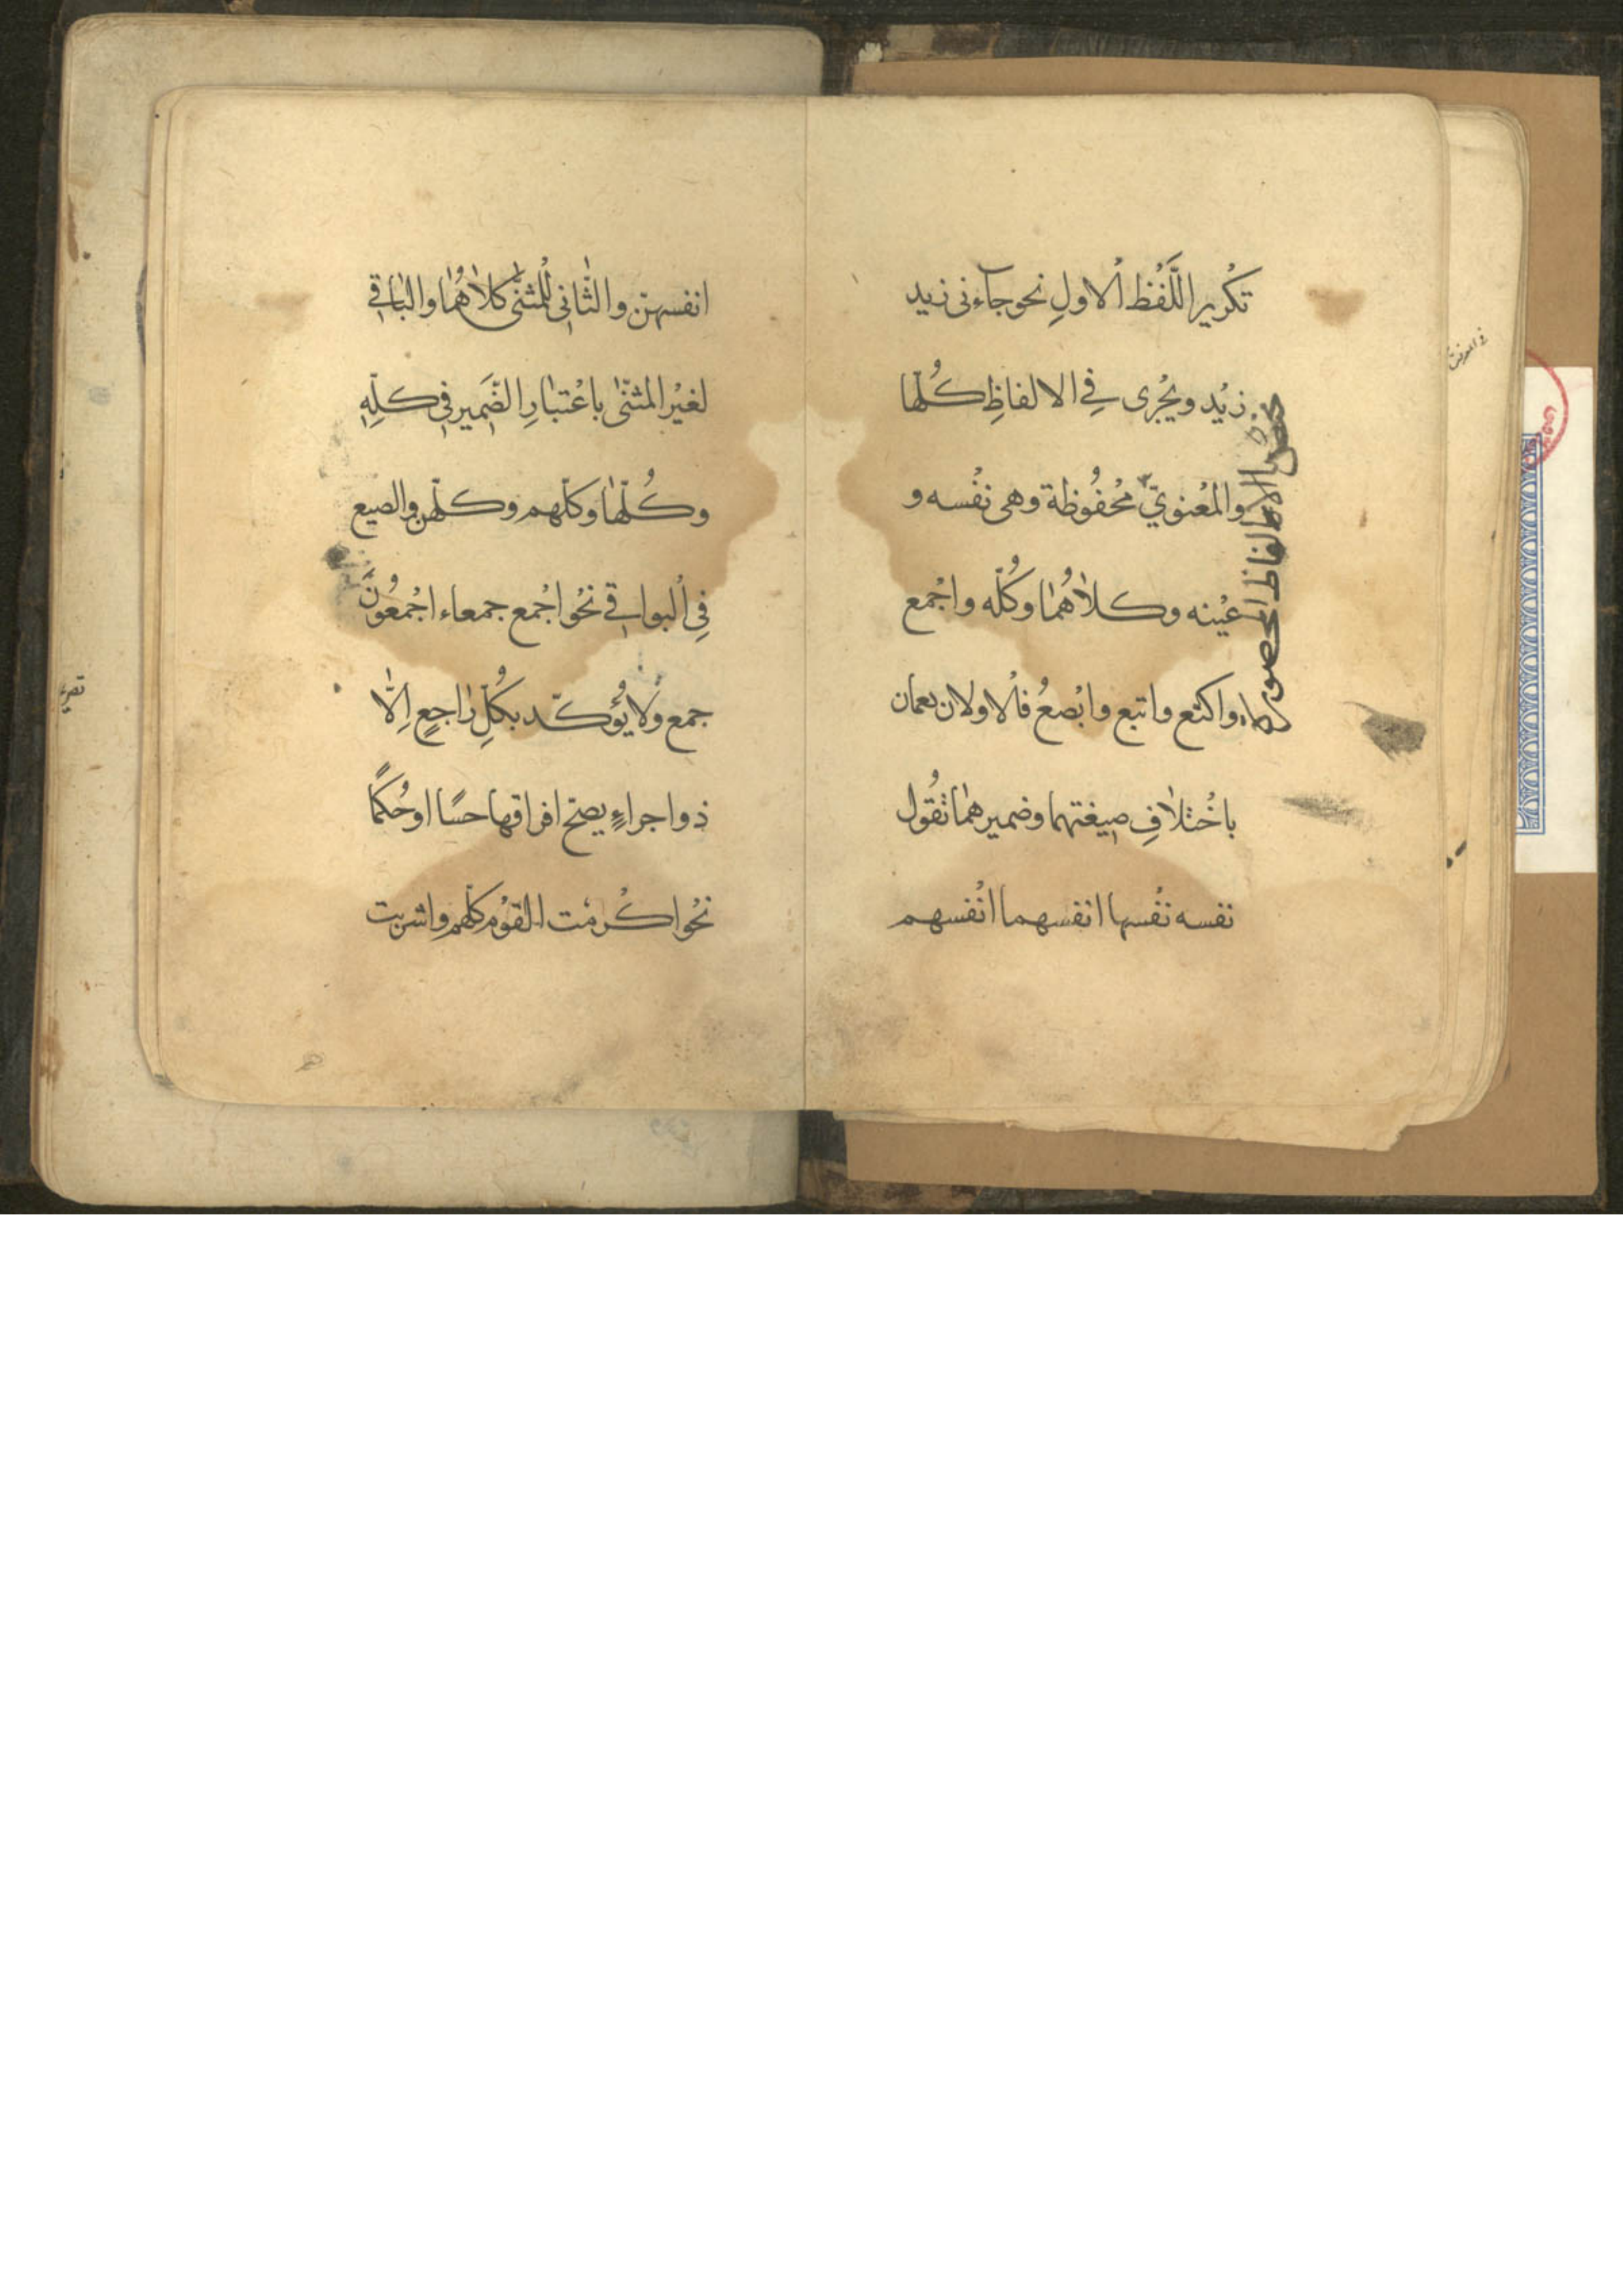 تكْرير اللَّفْظ الْاولِ نحو جآءنى زيد
زيْد ويجْرى فِي الالفاظِ كُلّها
والمْعنويّ محْفُوظة وهى نفْسه و
عيْنه وكلاٰهُمٰا وكُلّه واجْمع
واكتع واتبع وابْصعُ فالْاولان يعمان
باخْتلاٰفِ صيغتهما وضميرهمٰا تقُول
نفسه نفْسها انفسهما انْفسهم
بالالفاظ
انفسهنّ والثّانى للْمثنّى كلاٰهُمٰا والبٰاقي
لغيْر المثنّى باعْتبٰارِ الضَّمير في كلِّهِ
وكُلّهٰا وكلّهم وكلّهن والصيع
فِي الْبواقي نحْو اجْمع جمعاء اجْمعُونَ
جمع ولا يُؤكّد بكُلِّ رٰاجعٍ اِلّا
ذو اجراءٍ يصحّ افراقها حسًا اوحُكمًا
نحْو اكْرمْت القوْم كلّهم واشربت